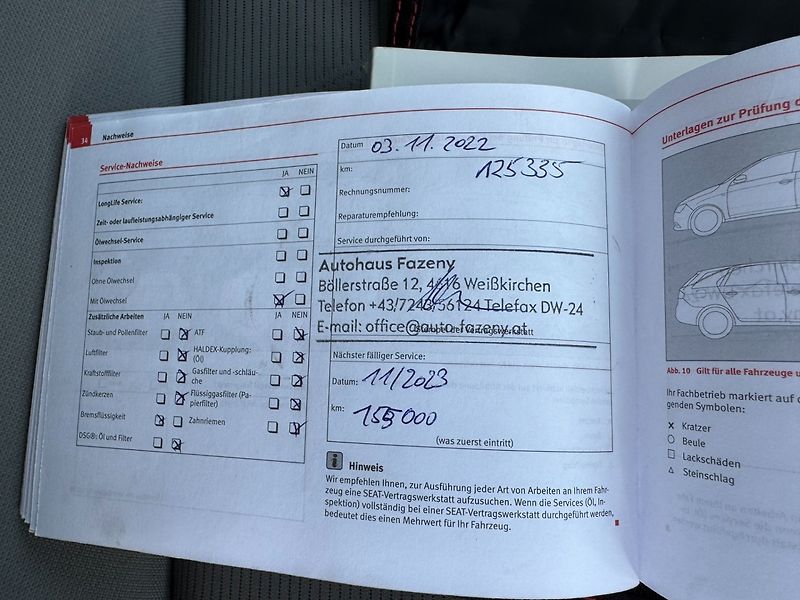 34 Nachweise
Service-Nachweise
JA NEIN
LongLife Service:
Zeit- oder laufleistungsabhängiger Service
Ölwechsel-Service
Inspektion
Ohne Ölwechsel
Mit Ölwechsel
Zusätzliche Arbeiten JA NEIN JA NEIN
Staub- und Pollenfilter ATF
Luftfilter HALDEX-Kupplung: (Öl)
Kraftstofffilter Gasfilter und -schläuche
Zündkerzen Flüssiggasfilter (Papierfilter)
Bremsflüssigkeit Zahnriemen
DSG®: Öl und Filter
Datum 03.11.2022
km: 125335
Rechnungsnummer:
Reparaturempfehlung:
Service durchgeführt von:
Autohaus Fazeny
Böllerstraße 12, 4616 Weißkirchen
Telefon +43/7243/56124 Telefax DW-24
E-mail: office@auto-fazeny.at
Nächster fälliger Service:
Datum: 11/2023
km: 155000
(was zuerst eintritt)
i Hinweis
Wir empfehlen Ihnen, zur Ausführung jeder Art von Arbeiten an Ihrem Fahr-
zeug eine SEAT-Vertragswerkstatt aufzusuchen. Wenn die Services (Öl, In-
spektion) vollständig bei einer SEAT-Vertragswerkstatt durchgeführt werden,
bedeutet dies einen Mehrwert für Ihr Fahrzeug.
Unterlagen zur Prüfung
Abb. 10 Gilt für alle Fahrzeuge
Ihr Fachbetrieb markiert auf
genden Symbolen:
x Kratzer
○ Beule
□ Lackschäden
△ Steinschlag